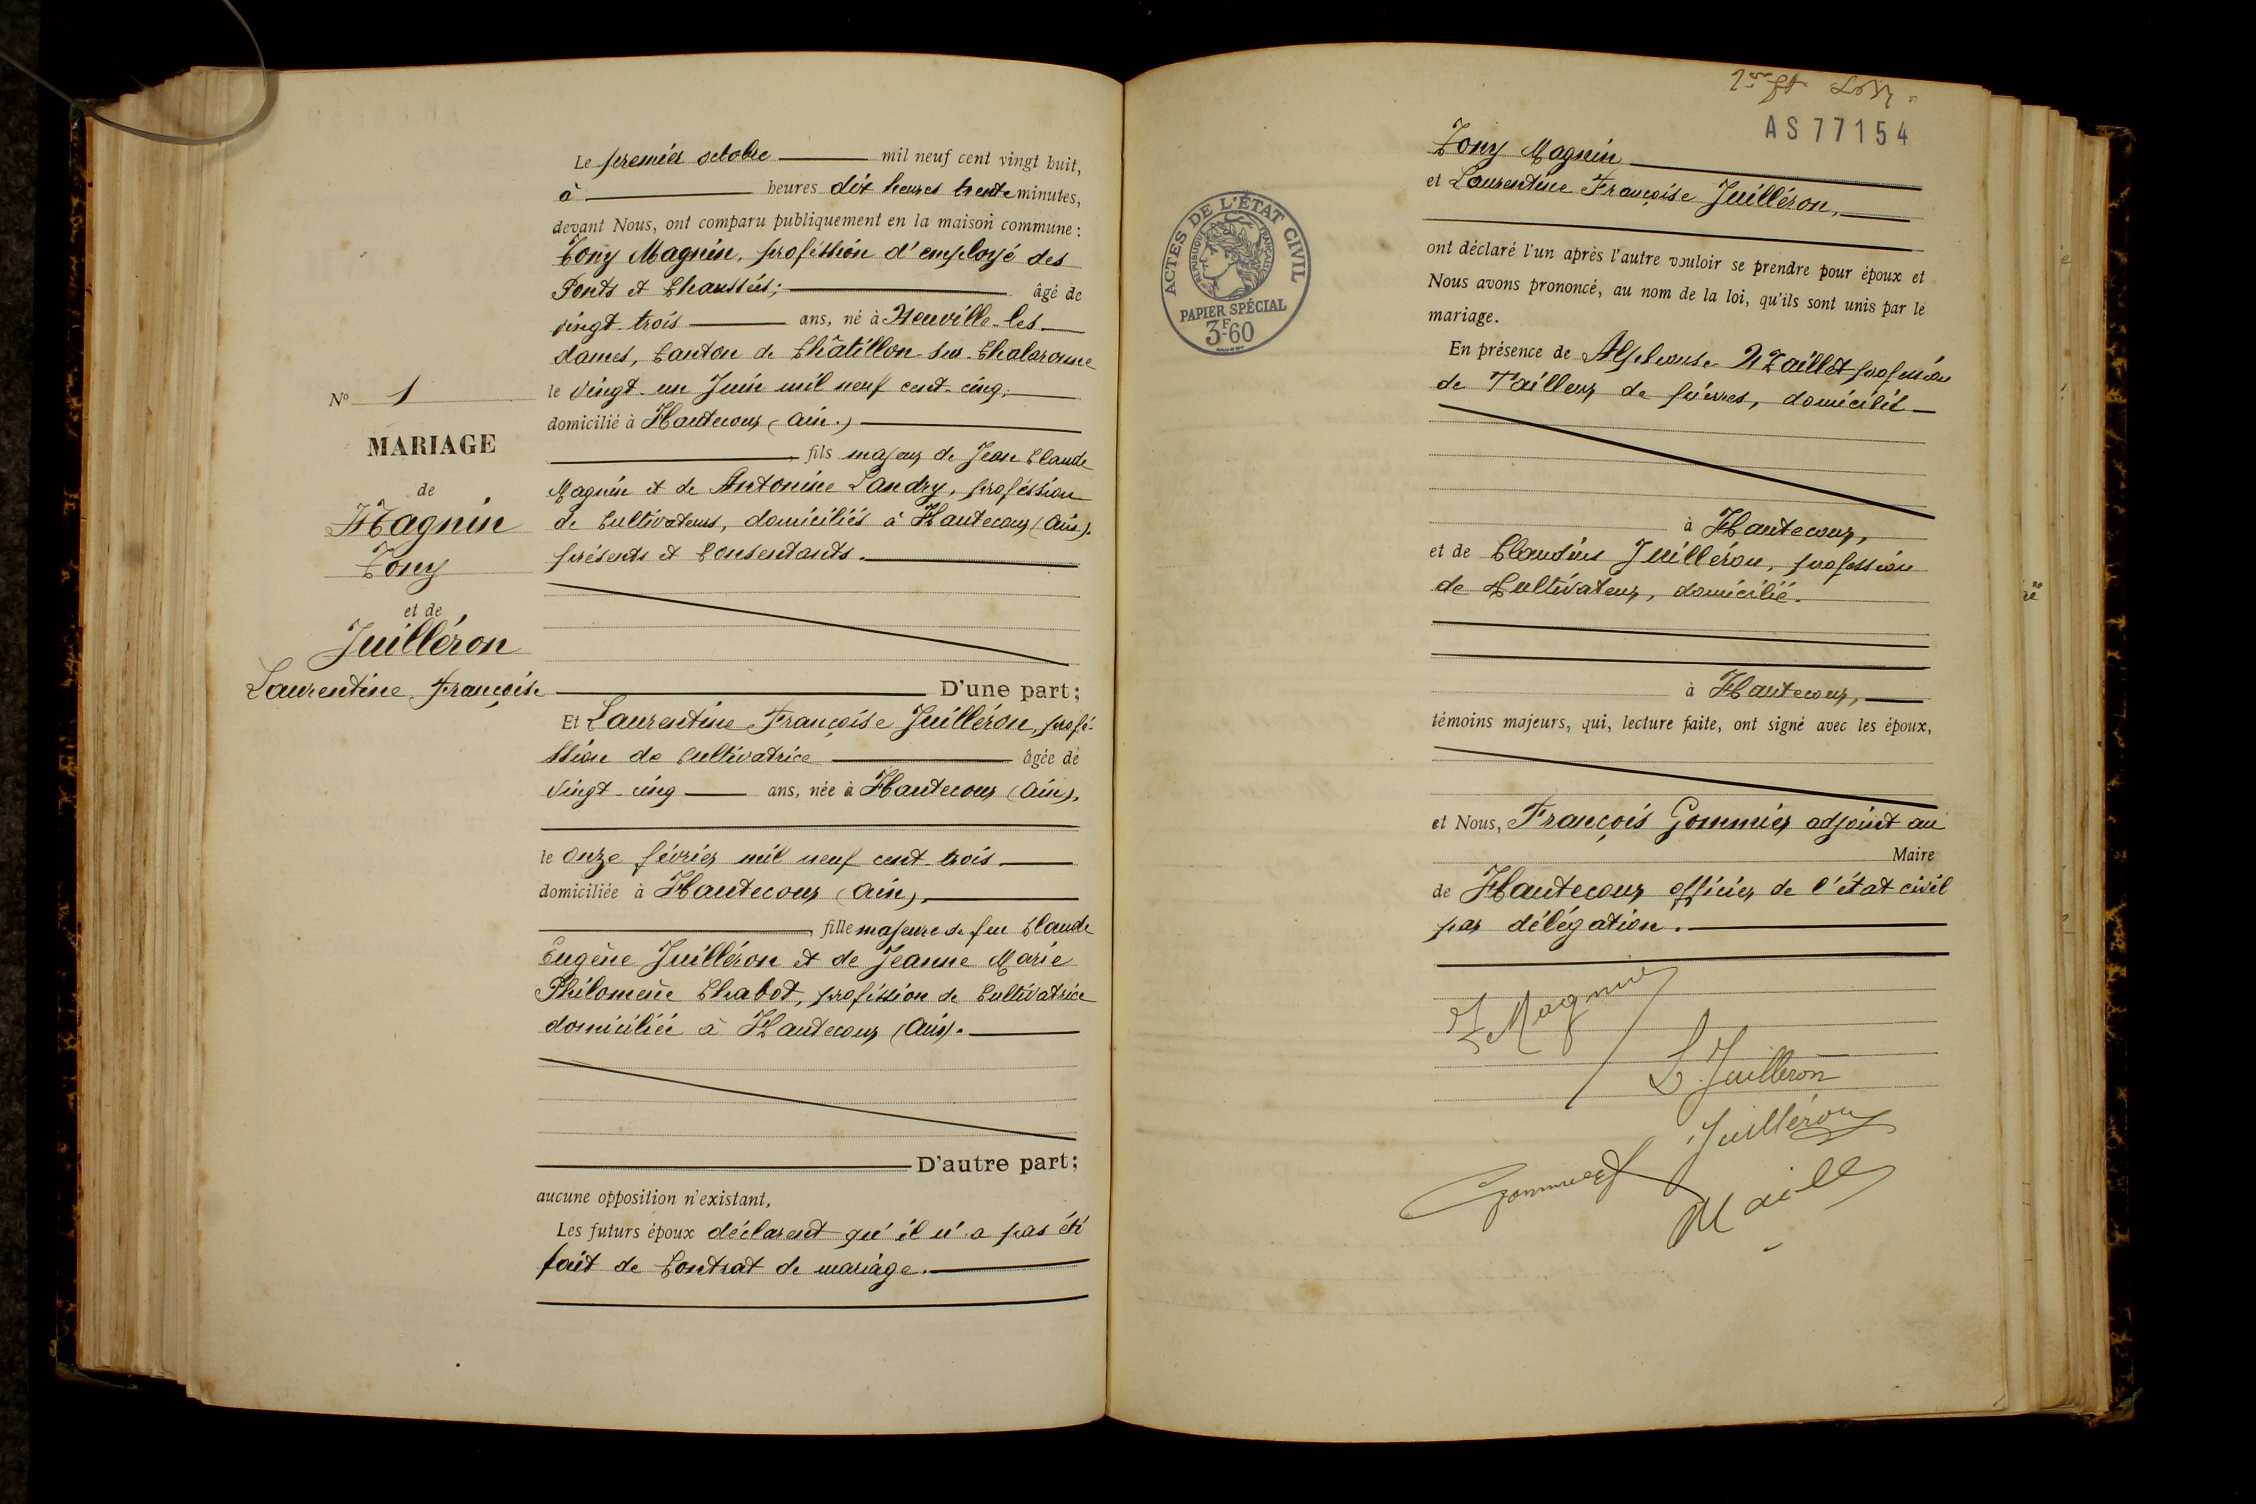 Le premier octobre mil neuf cent vingt huit,
à heures dix heures trente minutes,
devant Nous, ont comparu publiquement en la maison commune :
Tony Magnin, proféssion d'employé des
Ponts et Chaussées; âgé de
vingt-trois ans, né à Neuville-les-
dames, Canton de Châtillon-sur-Chalaronne
le vingt-un Juin mil neuf cent-cinq,
domicilié à Hautecour (Ain.)
fils majeur de Jean Claude
Magnin et de Antonine Landry, proféssion
de Cultivateurs, domiciliés à Hautecour (Ain).
présents et Consentants.
N° 1
MARIAGE
de
Magnin
Tony
et de
Juilléron
Laurentine Françoise
D'une part;
Et Laurentine Françoise Juilléron, profé-
ssion de Cultivatrice âgée de
vingt-cinq ans, née à Hautecour (Ain),
le onze février mil neuf cent trois
domiciliée à Hautecour (Ain),
fille majeure de feu Claude
Eugène Juilléron et de Jeanne Marie
Philomène Chabot, proféssion de Cultivatrice
domiciliée à Hautecour (Ain).
D'autre part;
aucune opposition n'existant,
Les futurs époux déclarent qu'il n'a pas été
fait de Contrat de mariage.
AS 77154
ACTES DE L'ÉTAT CIVIL
RÉPUBLIQUE FRANÇAISE
PAPIER SPÉCIAL
3F60
Tony Magnin
et Laurentine Françoise Juilléron,
ont déclaré l'un après l'autre vouloir se prendre pour époux et
Nous avons prononcé, au nom de la loi, qu'ils sont unis par le
mariage.
En présence de Alphonse profession
de Tailleur de pierres, domicilié
à Hautecour,
et de Claudius Juilléron, profession
de Cultivateur, domicilié.
à Hautecour,
témoins majeurs, qui, lecture faite, ont signé avec les époux,
et Nous, François Gommier adjoint au
Maire
de Hautecour officier de l'état civil
par délégation.
T Magnin
L. Juilleron
Juilléron
Gommier